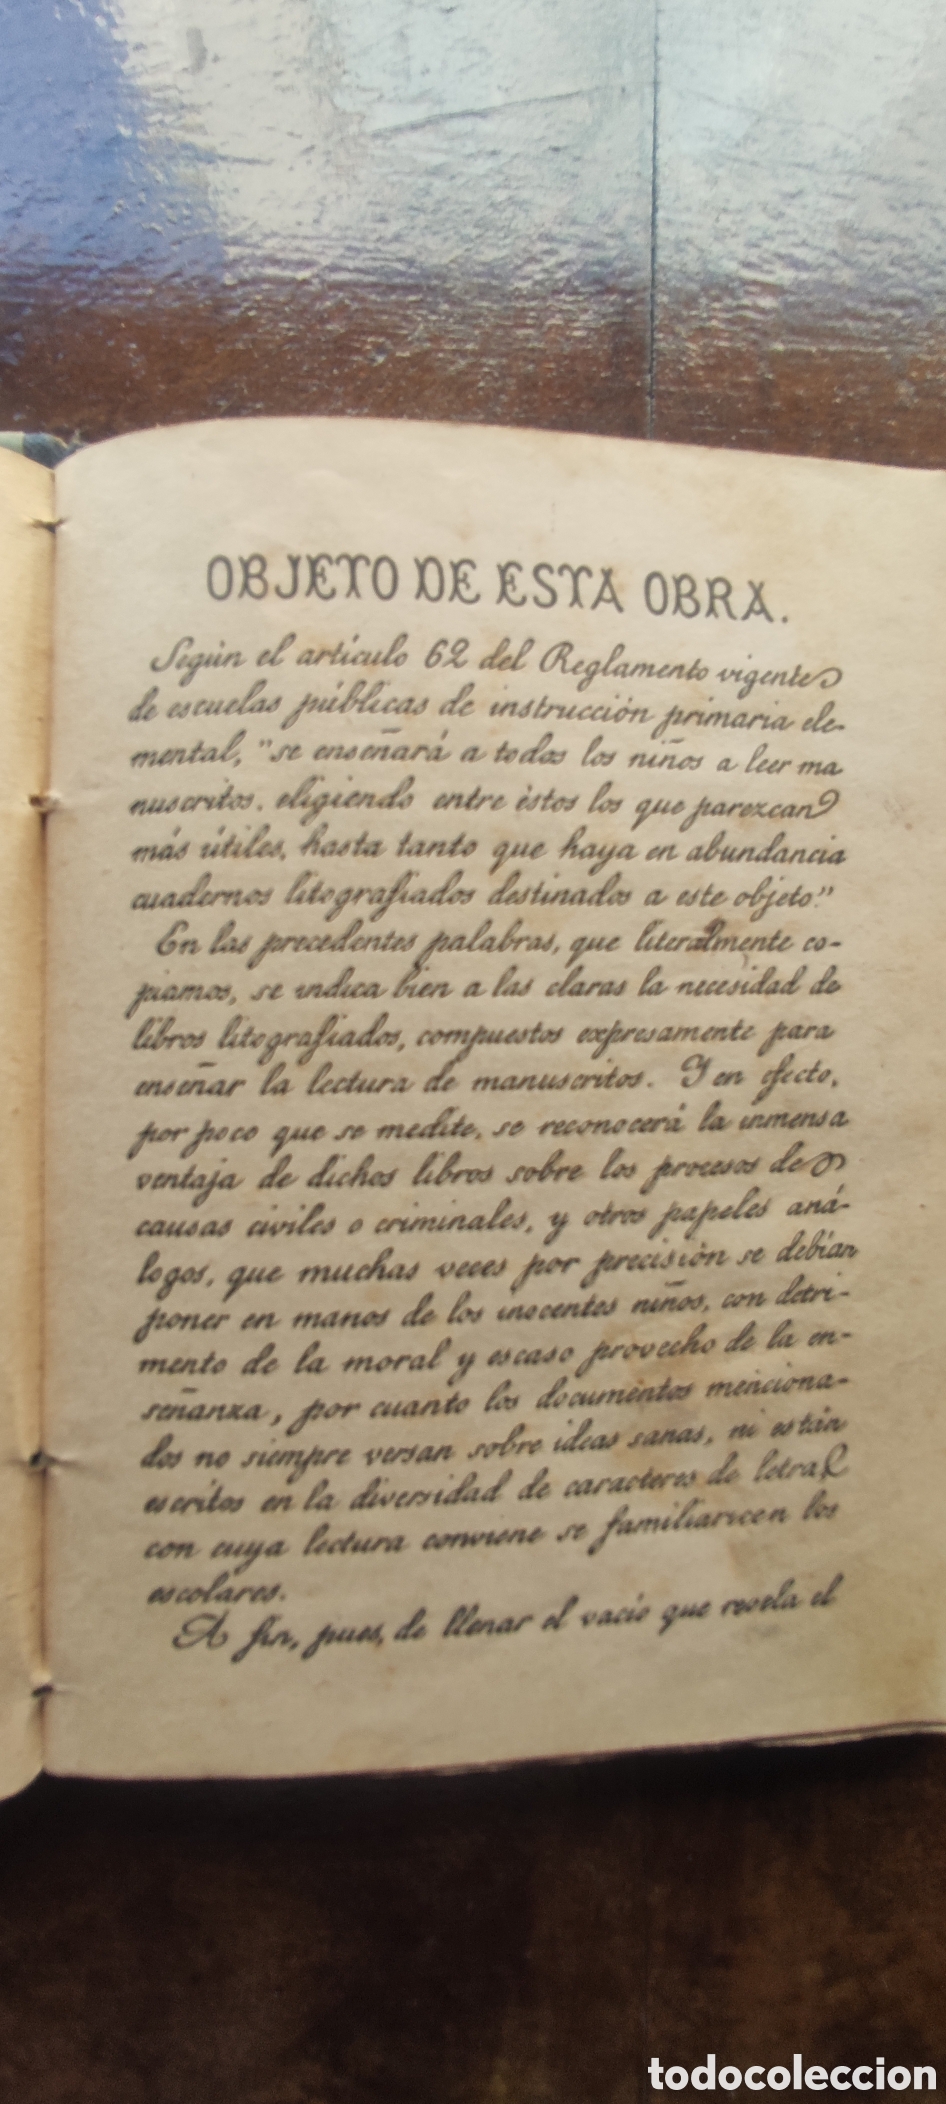 OBJETO DE ESTA OBRA.
Según el artículo 62 del Reglamento vigente
de escuelas públicas de instrucción primaria ele-
mental, "se enseñará a todos los niños a leer ma
nuscritos, eligiendo entre éstos los que parezcan
más útiles, hasta tanto que haya en abundancia
cuadernos litografiados destinados a este objeto."
En las precedentes palabras, que literalmente co-
piamos, se indica bien a las claras la necesidad de
libros litografiados, compuestos expresamente para
enseñar la lectura de manuscritos. Y en efecto,
por poco que se medite, se reconocerá la inmensa
ventaja de dichos libros sobre los procesos de
causas civiles o criminales, y otros papeles aná-
logos, que muchas veces por precisión se debían
poner en manos de los inocentes niños, con detri-
mento de la moral y escaso provecho de la en-
señanza, por cuanto los documentos menciona-
dos no siempre versan sobre ideas sanas, ni están
escritos en la diversidad de caracteres de letra
con cuya lectura conviene se familiaricen los
escolares.
A fin, pues, de llenar el vacío que revela el
todocoleccion